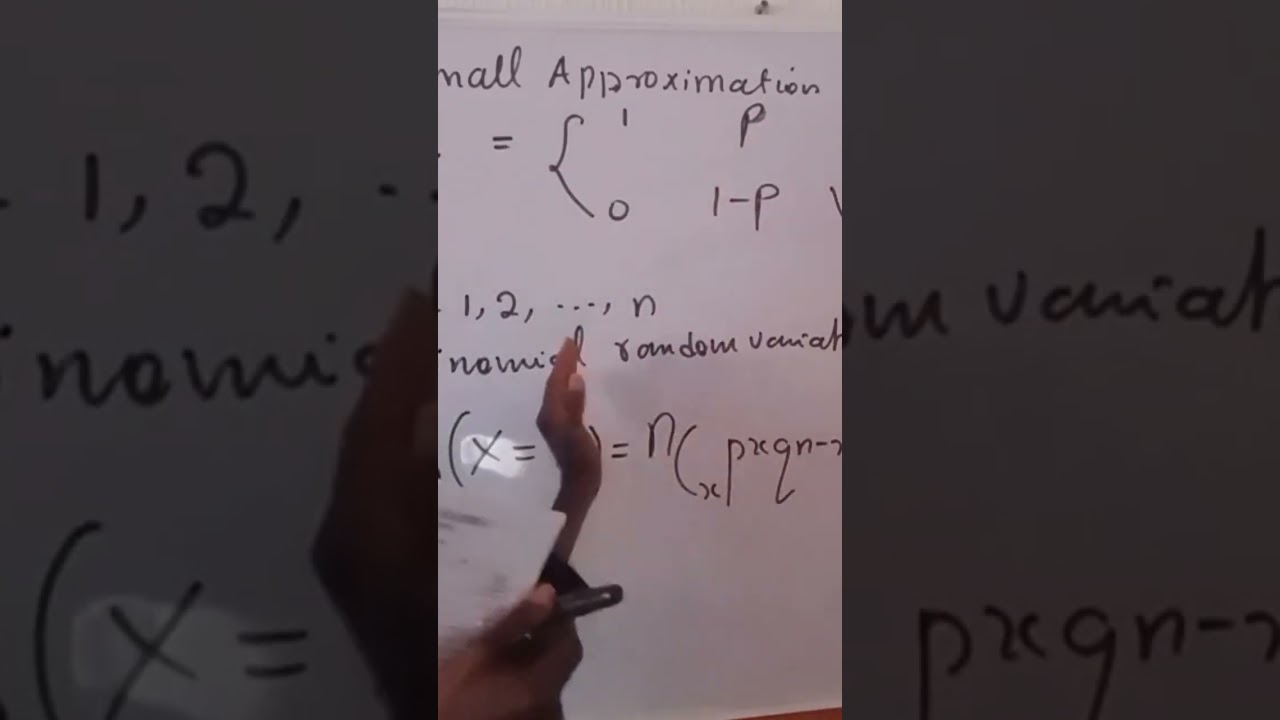 mall Approximation
= { 1 p
0 1-p
1, 2, ..., n
nomial random variat
(X= ) = nCx pxqn-x